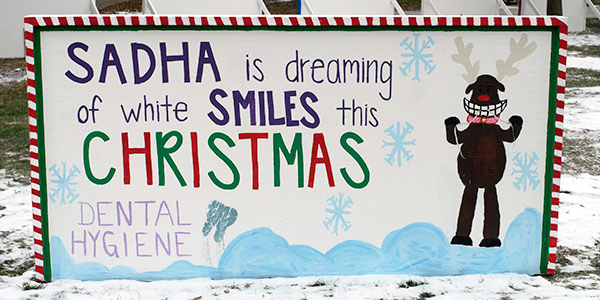 SADHA is dreaming
of white SMILES this
CHRISTMAS
DENTAL
HYGIENE